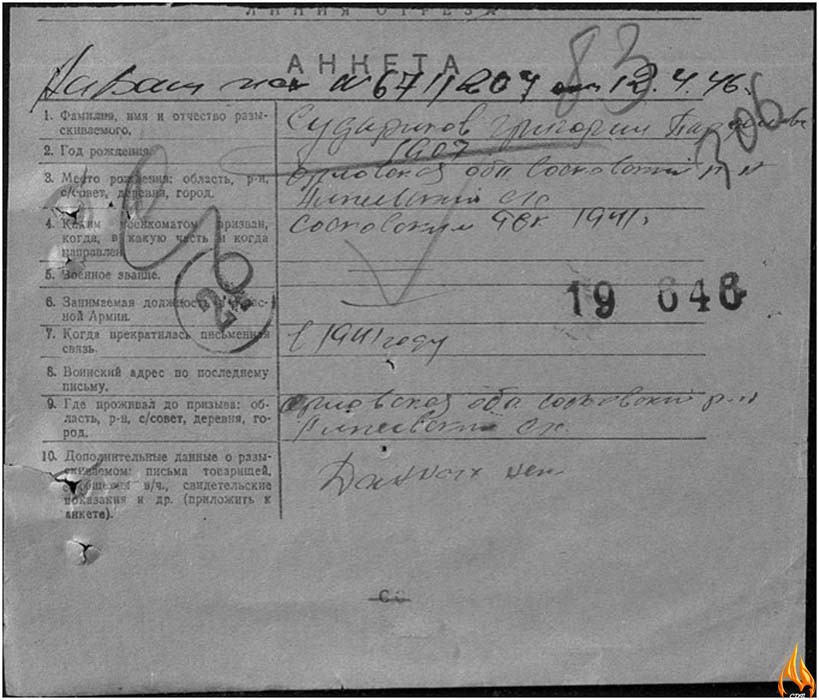 ЛИНИЯ ОТРЕЗА
АНКЕТА
83
На Ваш исх N 671/1207 от 12.4.46.
306
1. Фамилия, имя и отчество разы-
скиваемого.
Судариков Григорий
2. Год рождения.
1907
3. Место рождения: область, р-н,
с/совет, деревня, город.
Орловская обл Сосковский р-н
с/с
4. Каким военкоматом призван,
когда, в какую часть и когда
направлен.
Сосковским РВК 1941г
5. Военное звание.
20
6. Занимаемая должность в Крас-
ной Армии.
19 646
7. Когда прекратилась письменная
связь.
в 1941 году
8. Воинский адрес по последнему
письму.
9. Где проживал до призыва: об-
ласть, р-н, с/совет, деревня, го-
род.
Орловская обл Сосковский р-н
с/с.
10. Дополнительные данные о разы-
скиваемом: письма товарищей,
сообщения в/ч., свидетельские
показания и др. (приложить к
анкете).
Данных нет